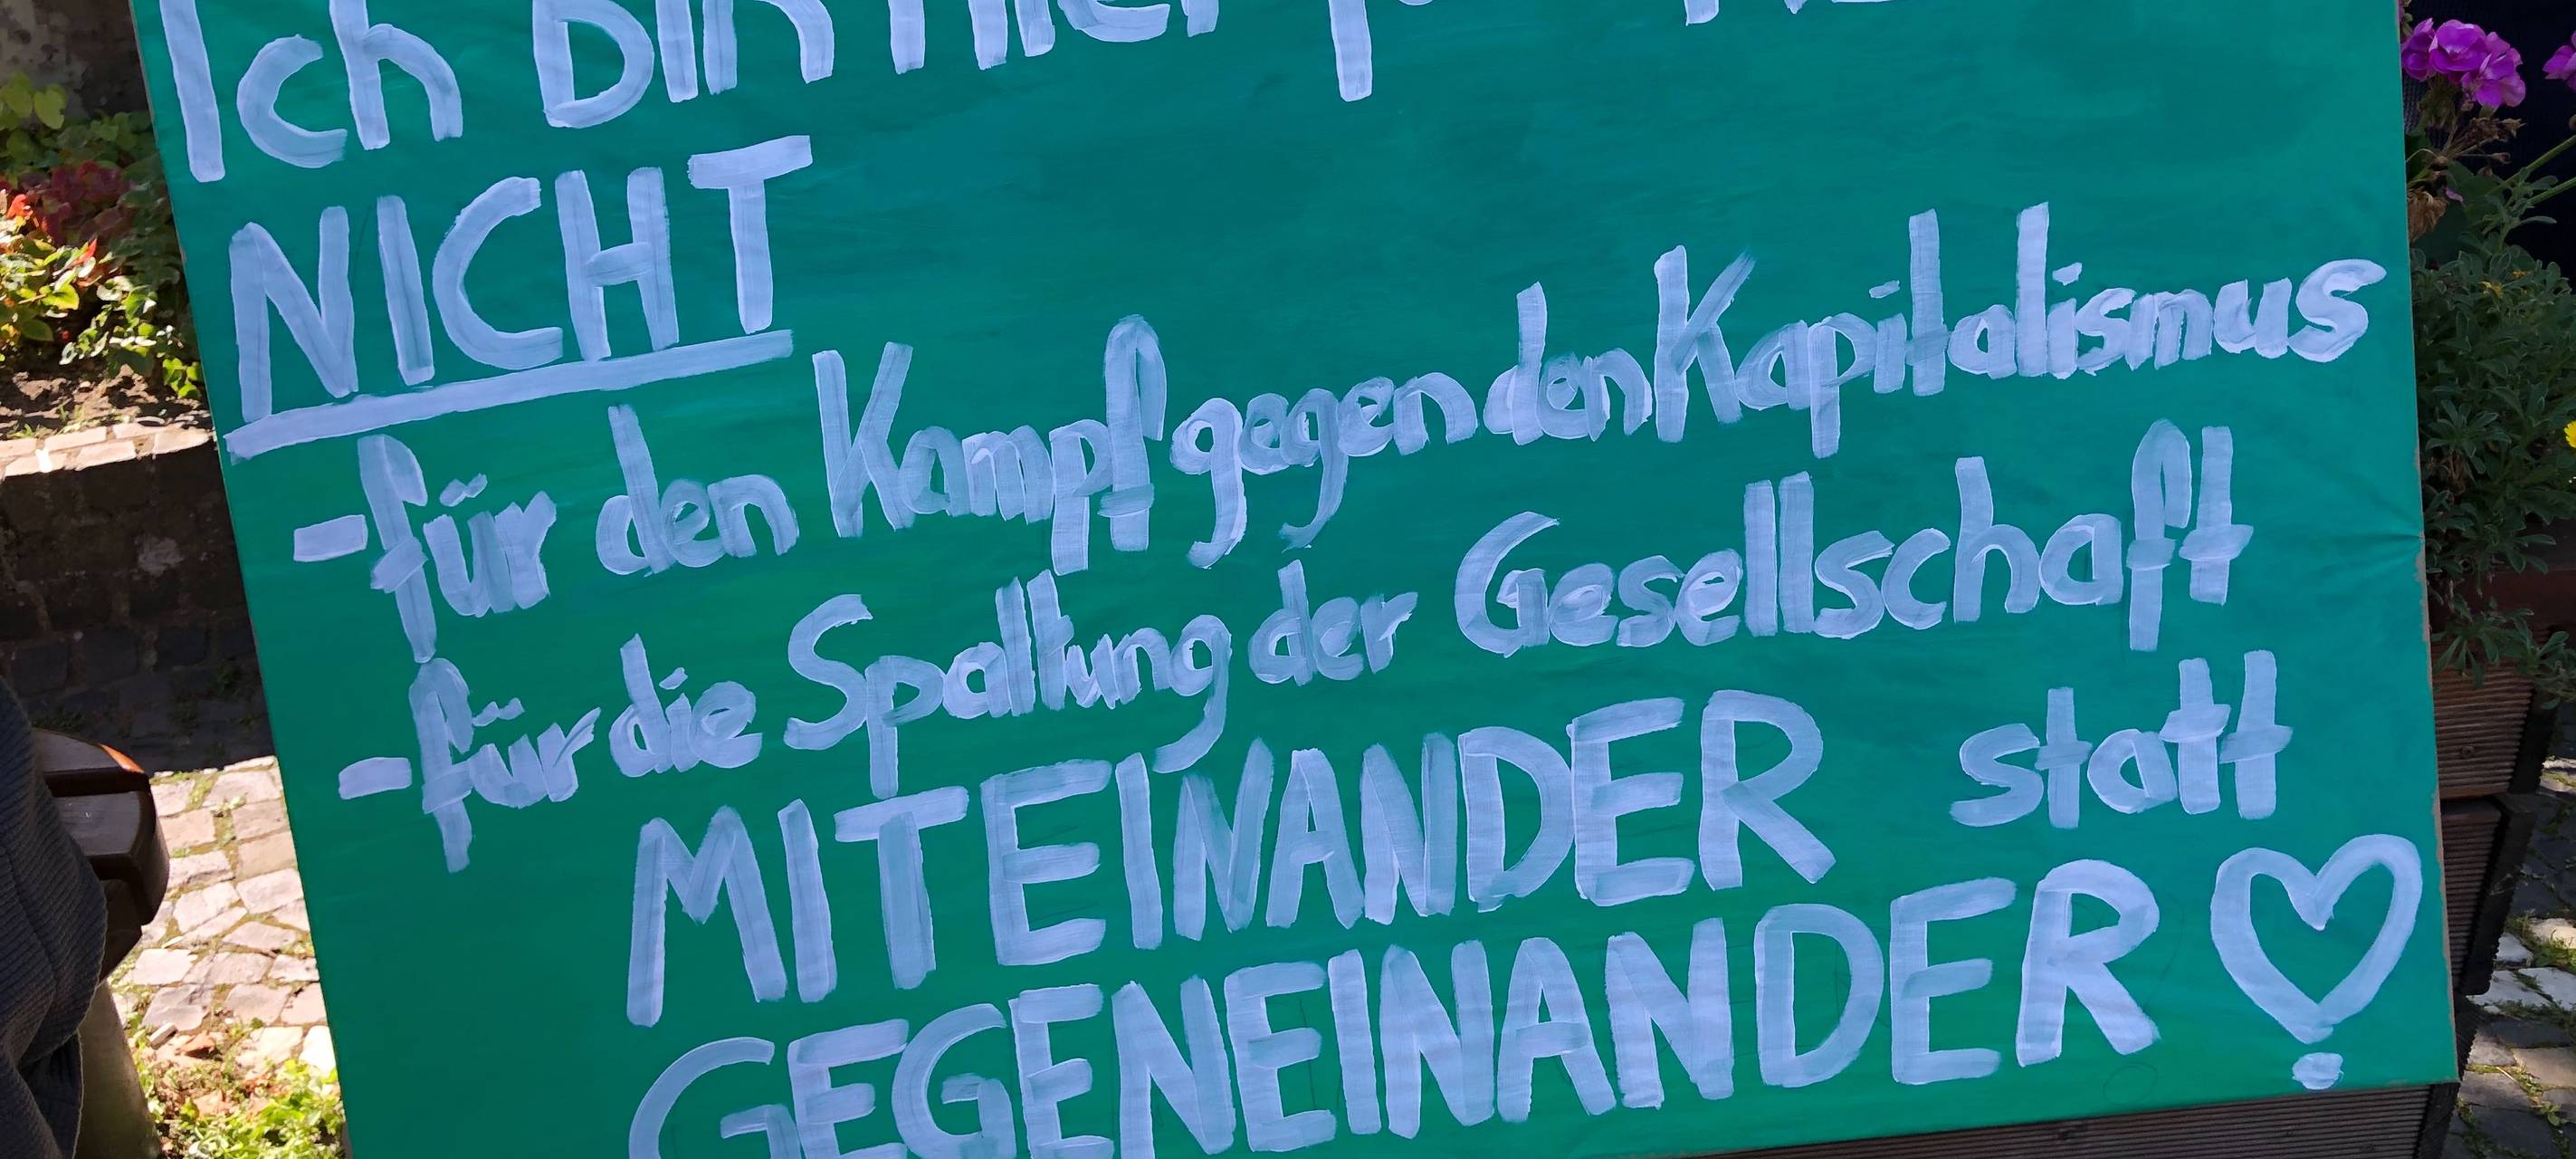 Ich bin hier
NICHT
-für den Kampf gegen den Kapitalismus
-für die Spaltung der Gesellschaft
MITEINANDER statt
GEGENEINANDER